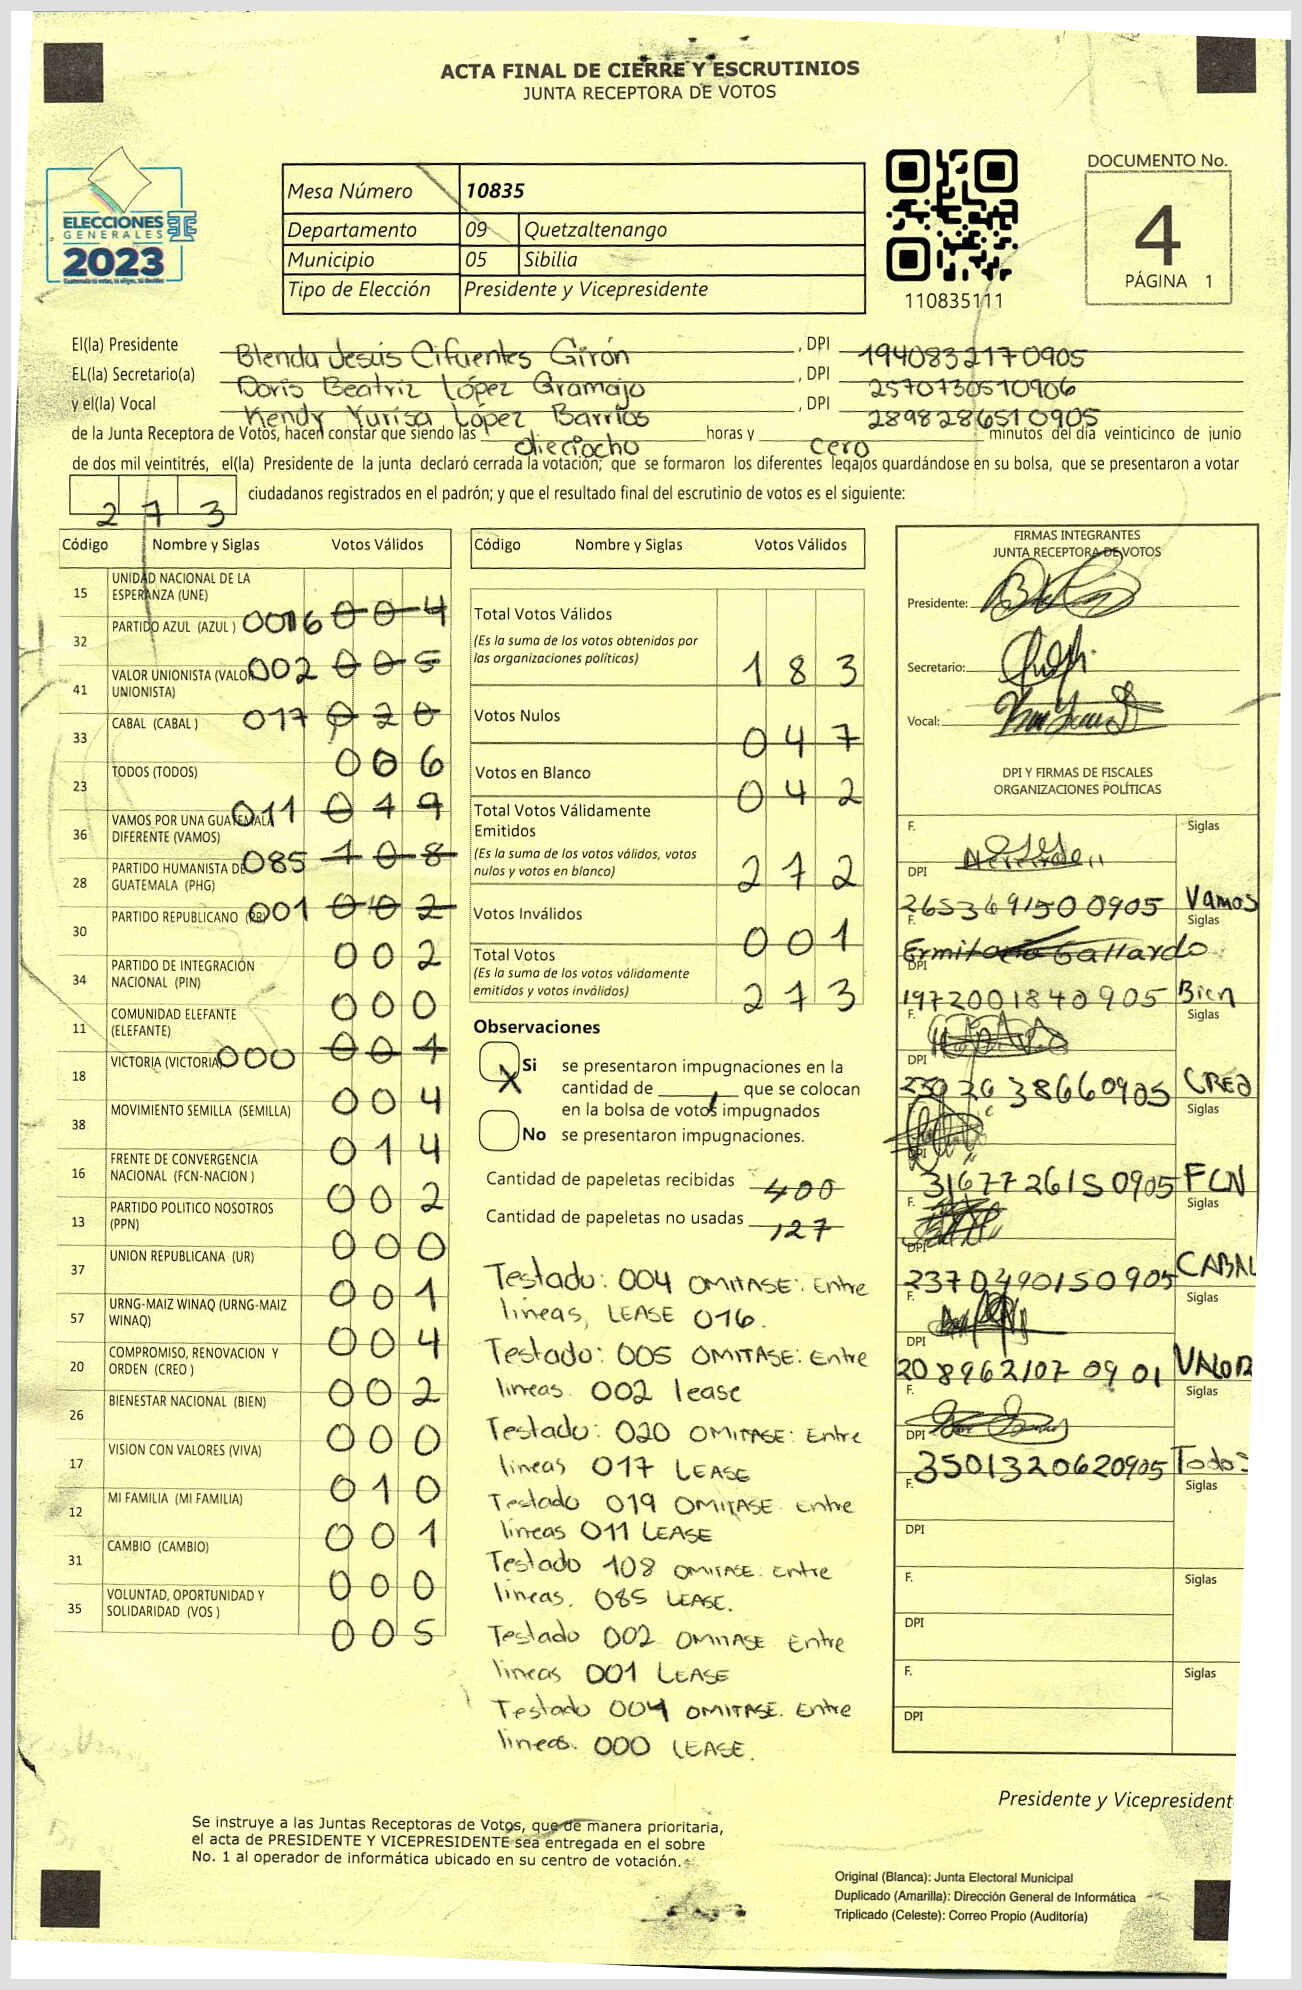 ACTA FINAL DE CIERRE Y ESCRUTINIOS
JUNTA RECEPTORA DE VOTOS
ELECCIONES
GENERALES
2023
Mesa Número 10835
Departamento 09 Quetzaltenango
Municipio 05 Sibilia
Tipo de Elección Presidente y Vicepresidente
110835111
DOCUMENTO No.
4
PÁGINA 1
El(la) Presidente Blenda Jesús Cifuentes Girón, DPI 1940832170905
EL(la) Secretario(a) Doris Beatriz López Gramajo, DPI 2570730510906
y el(la) Vocal Kendy Yurisa López Barrios, DPI 2898286510905
de la Junta Receptora de Votos, hacen constar que siendo las dieciocho horas y cero minutos del día veinticinco de junio
de dos mil veintitrés, el(la) Presidente de la junta declaró cerrada la votación; que se formaron los diferentes legajos guardándose en su bolsa, que se presentaron a votar
2 7 3 ciudadanos registrados en el padrón; y que el resultado final del escrutinio de votos es el siguiente:
Código Nombre y Siglas Votos Válidos
15 UNIDAD NACIONAL DE LA ESPERANZA (UNE) 0016 004
32 PARTIDO AZUL (AZUL) 002 005
41 VALOR UNIONISTA (VALOR UNIONISTA) 017 020
33 CABAL (CABAL) 006
23 TODOS (TODOS) 011 019
36 VAMOS POR UNA GUATEMALA DIFERENTE (VAMOS) 085 108
28 PARTIDO HUMANISTA DE GUATEMALA (PHG) 001 002
30 PARTIDO REPUBLICANO (PR) 002
34 PARTIDO DE INTEGRACIÓN NACIONAL (PIN) 000
11 COMUNIDAD ELEFANTE (ELEFANTE) 000 004
18 VICTORIA (VICTORIA) 004
38 MOVIMIENTO SEMILLA (SEMILLA) 014
16 FRENTE DE CONVERGENCIA NACIONAL (FCN-NACION) 002
13 PARTIDO POLITICO NOSOTROS (PPN) 000
37 UNION REPUBLICANA (UR) 001
57 URNG-MAIZ WINAQ (URNG-MAIZ WINAQ) 004
20 COMPROMISO, RENOVACION Y ORDEN (CREO) 002
26 BIENESTAR NACIONAL (BIEN) 000
17 VISION CON VALORES (VIVA) 010
12 MI FAMILIA (MI FAMILIA) 001
31 CAMBIO (CAMBIO) 000
35 VOLUNTAD, OPORTUNIDAD Y SOLIDARIDAD (VOS) 005
Código Nombre y Siglas Votos Válidos
Total Votos Válidos
(Es la suma de los votos obtenidos por
las organizaciones políticas) 183
Votos Nulos 047
Votos en Blanco 042
Total Votos Válidamente
Emitidos
(Es la suma de los votos válidos, votos
nulos y votos en blanco) 272
Votos Inválidos 001
Total Votos
(Es la suma de los votos válidamente
emitidos y votos inválidos) 273
Observaciones
X Si se presentaron impugnaciones en la
cantidad de 1 que se colocan
en la bolsa de votos impugnados
No se presentaron impugnaciones.
Cantidad de papeletas recibidas 400
Cantidad de papeletas no usadas 127
Testado: 004 OMITASE: Entre
lineas, LEASE 016.
Testado: 005 OMITASE: Entre
lineas. 002 lease
Testado: 020 OMITASE: Entre
lineas 017 LEASE
Testado 019 OMITASE. Entre
lineas 011 LEASE
Testado 108 OMITASE. Entre
lineas. 085 LEASE.
Testado 002 OMITASE Entre
lineas 001 LEASE
Testado 004 OMITASE. Entre
lineas. 000 LEASE.
FIRMAS INTEGRANTES
JUNTA RECEPTORA DE VOTOS
Presidente:
Secretario:
Vocal:
DPI Y FIRMAS DE FISCALES
ORGANIZACIONES POLÍTICAS
F. Siglas
DPI 2653691500905 Vamos
F. Ermit Gallardo Siglas
DPI 1972001840905 Bien
F. Siglas
DPI 38660905 CREO
F. Siglas
DPI 3167726150905 FCN
F. Siglas
DPI 2370490150905 CABAL
F. Siglas
DPI 2089621070901 VALOR
F. Siglas
DPI 3501320620905 Todos
F. Siglas
DPI
F. Siglas
DPI
F. Siglas
DPI
Presidente y Vicepresident
Se instruye a las Juntas Receptoras de Votos, que de manera prioritaria,
el acta de PRESIDENTE Y VICEPRESIDENTE sea entregada en el sobre
No. 1 al operador de informática ubicado en su centro de votación.
Original (Blanca): Junta Electoral Municipal
Duplicado (Amarilla): Dirección General de Informática
Triplicado (Celeste): Correo Propio (Auditoría)